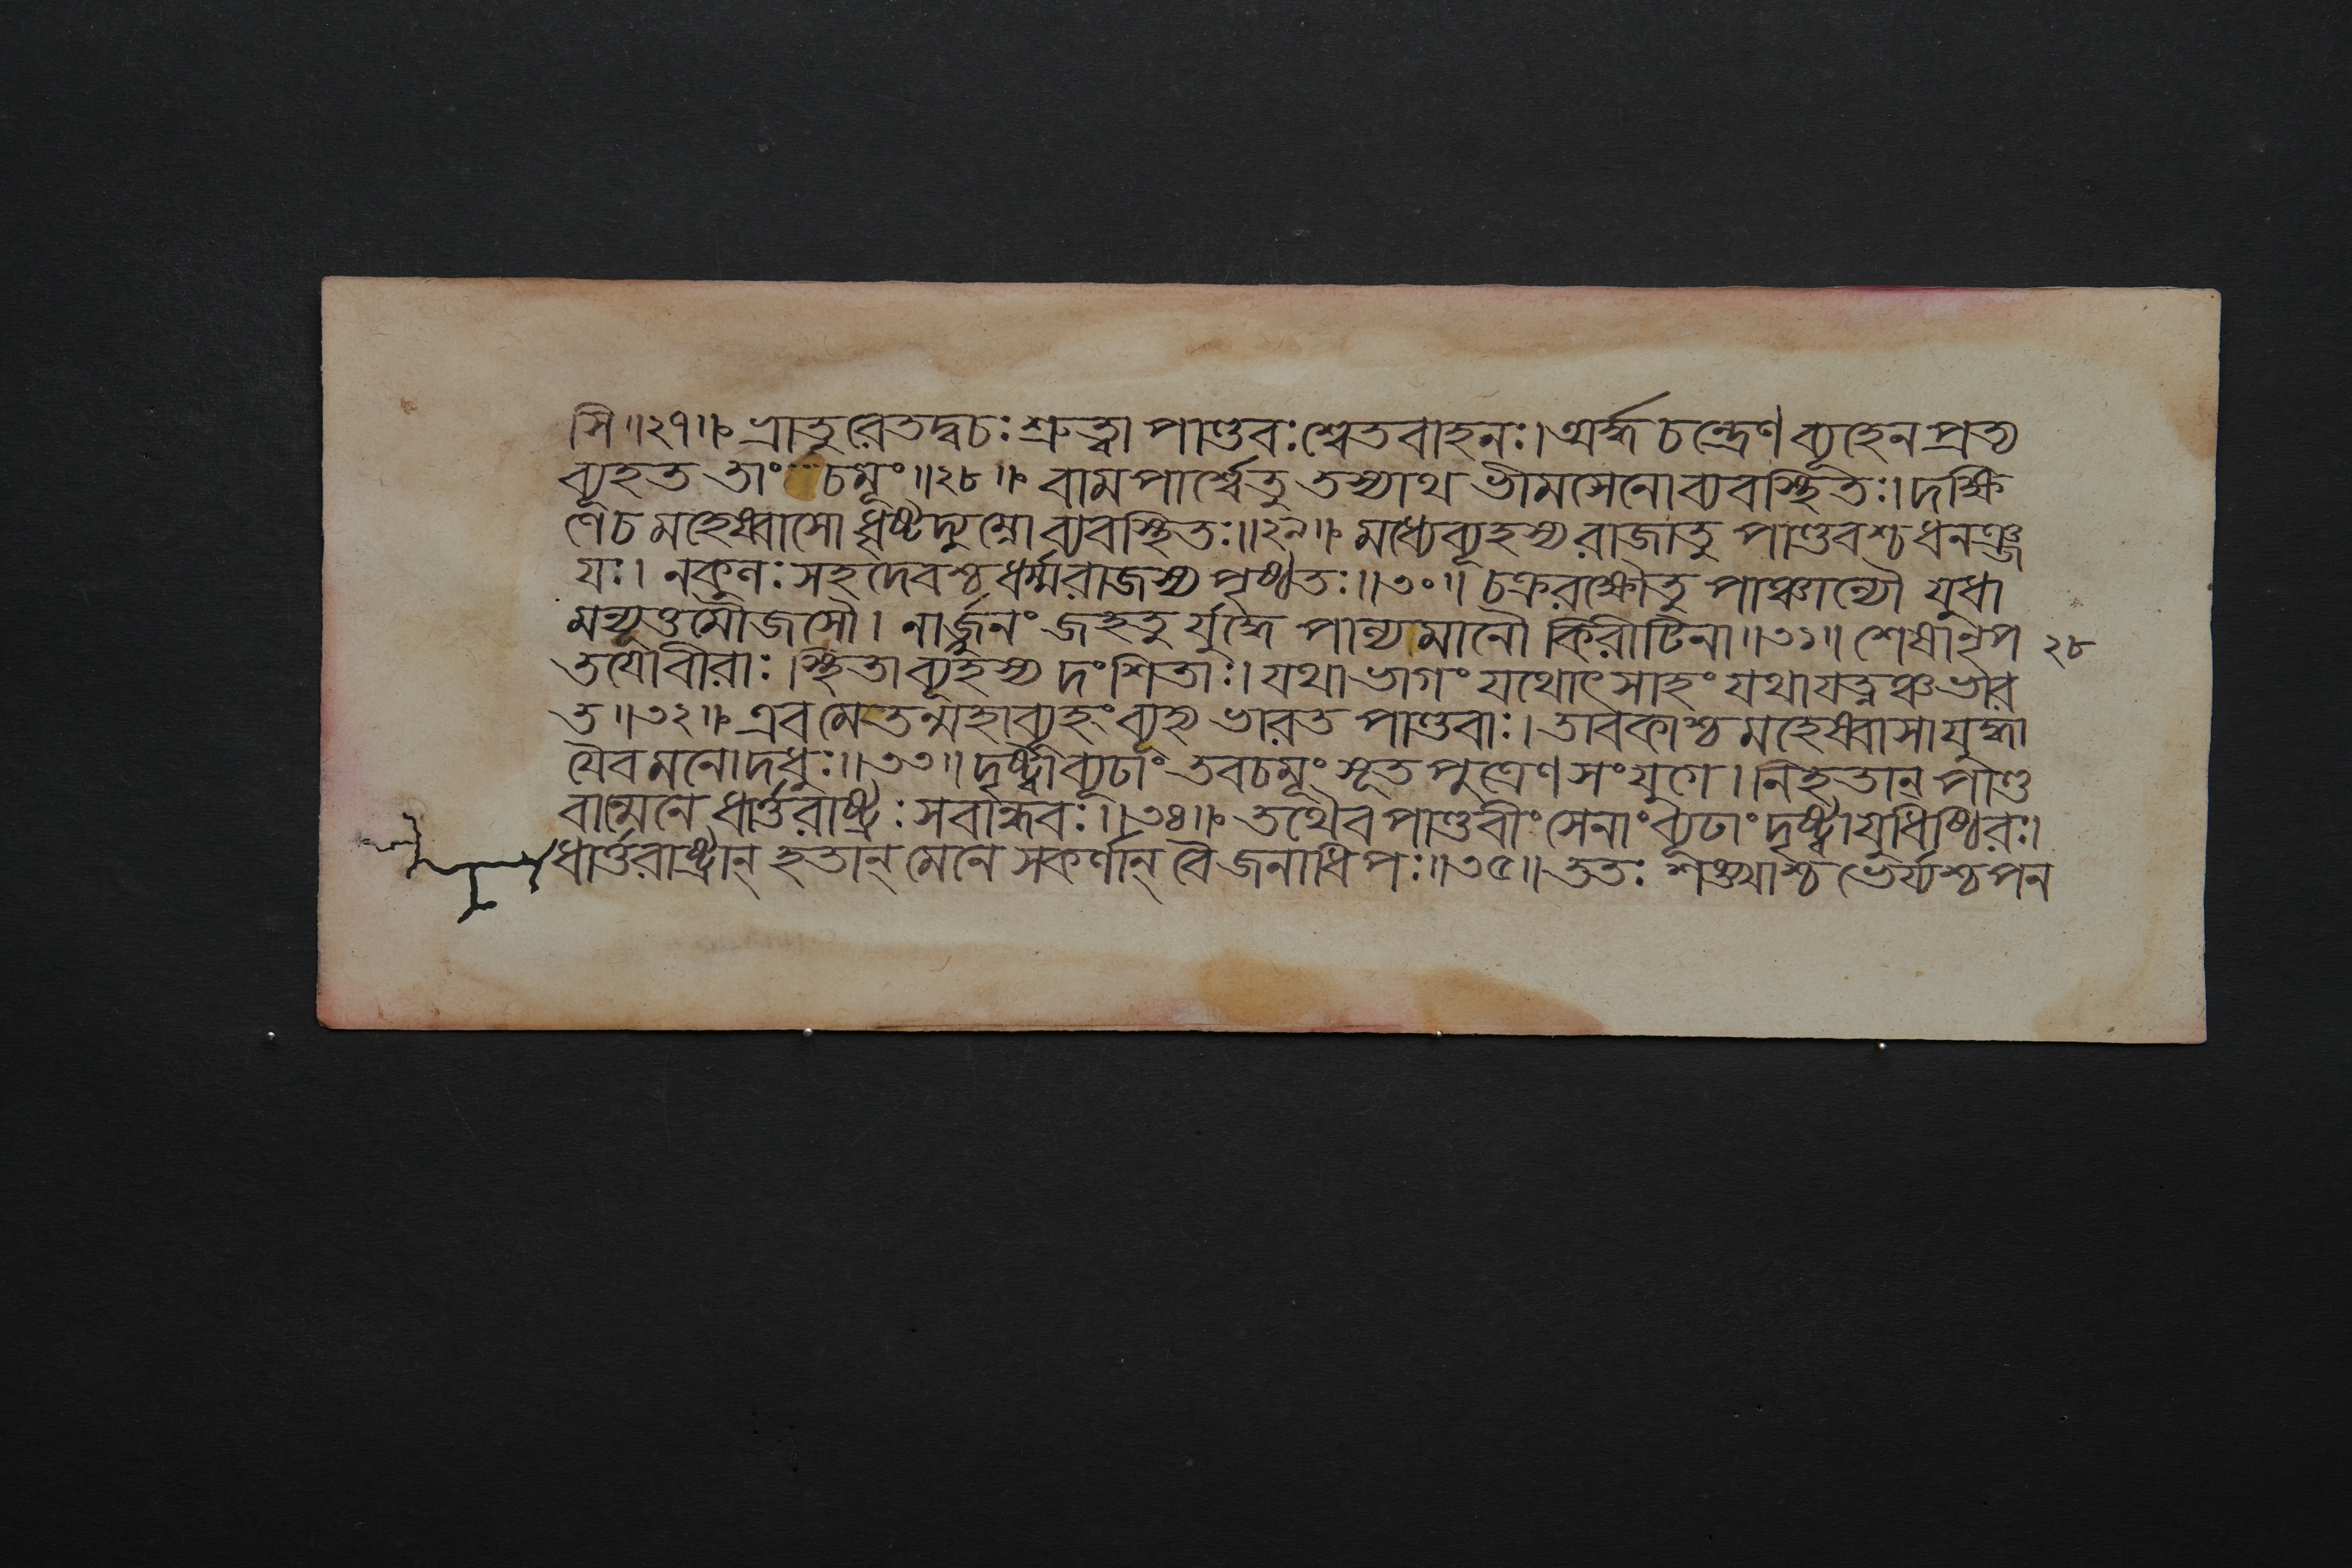 সি॥২৭॥ ভ্রাতুরেতদ্বচঃ শ্রুত্বা পাণ্ডবঃ শ্বেতবাহনঃ। অর্দ্ধচন্দ্রেণ ব্যূহেন প্রত্য
ব্যূহত তাং চমূং॥২৮॥ বামপার্শ্বেতু তস্যাথ ভীমসেনো ব্যবস্থিতঃ। দক্ষি
ণে চ মহেষ্বাসো ধৃষ্টদ্যুম্নো ব্যবস্থিতঃ॥২৯॥ মধ্যে ব্যূহস্য রাজাতু পাণ্ডবশ্চ ধনঞ্জ
যঃ। নকুলঃ সহদেবশ্চ ধর্ম্মরাজস্য পৃষ্ঠতঃ॥৩০॥ চক্ররক্ষৌতু পাঞ্চাল্যৌ যুধা
মন্যূত্তমৌজসৌ। নার্জ্জুনং জহতু র্যুদ্ধে পাল্যমানৌ কিরীটিনা॥৩১॥ শেষানৃপ ২৮
তযোবীরাঃ। স্থিতা ব্যূহস্য দংশিতাঃ। যথাভাগং যথোৎসাহং যথাযত্নঞ্চ ভার
ত॥৩২॥ এবমেতন্মহাব্যূহং ব্যূহ্য ভারত পাণ্ডবাঃ। তাবকাশ্চ মহেষ্বাসা যুদ্ধা
যৈব মনোদধুঃ॥৩৩॥ দৃষ্ট্বা ব্যূঢাং তব চমূং সূতপুত্রেণ সংযুগে। নিহতান্ পাণ্ড
বান্মেনে ধার্ত্তরাষ্ট্রঃ সবান্ধবঃ॥৩৪॥ তথৈব পাণ্ডবীং সেনাং ব্যূঢাং দৃষ্ট্বা যুধিষ্ঠিরঃ।
ধার্ত্তরাষ্ট্রান্ হতান্ মেনে সকর্ণান্ বৈ জনাধিপঃ॥৩৫॥ ততঃ শঙ্খাশ্চ ভের্য্যশ্চ পন